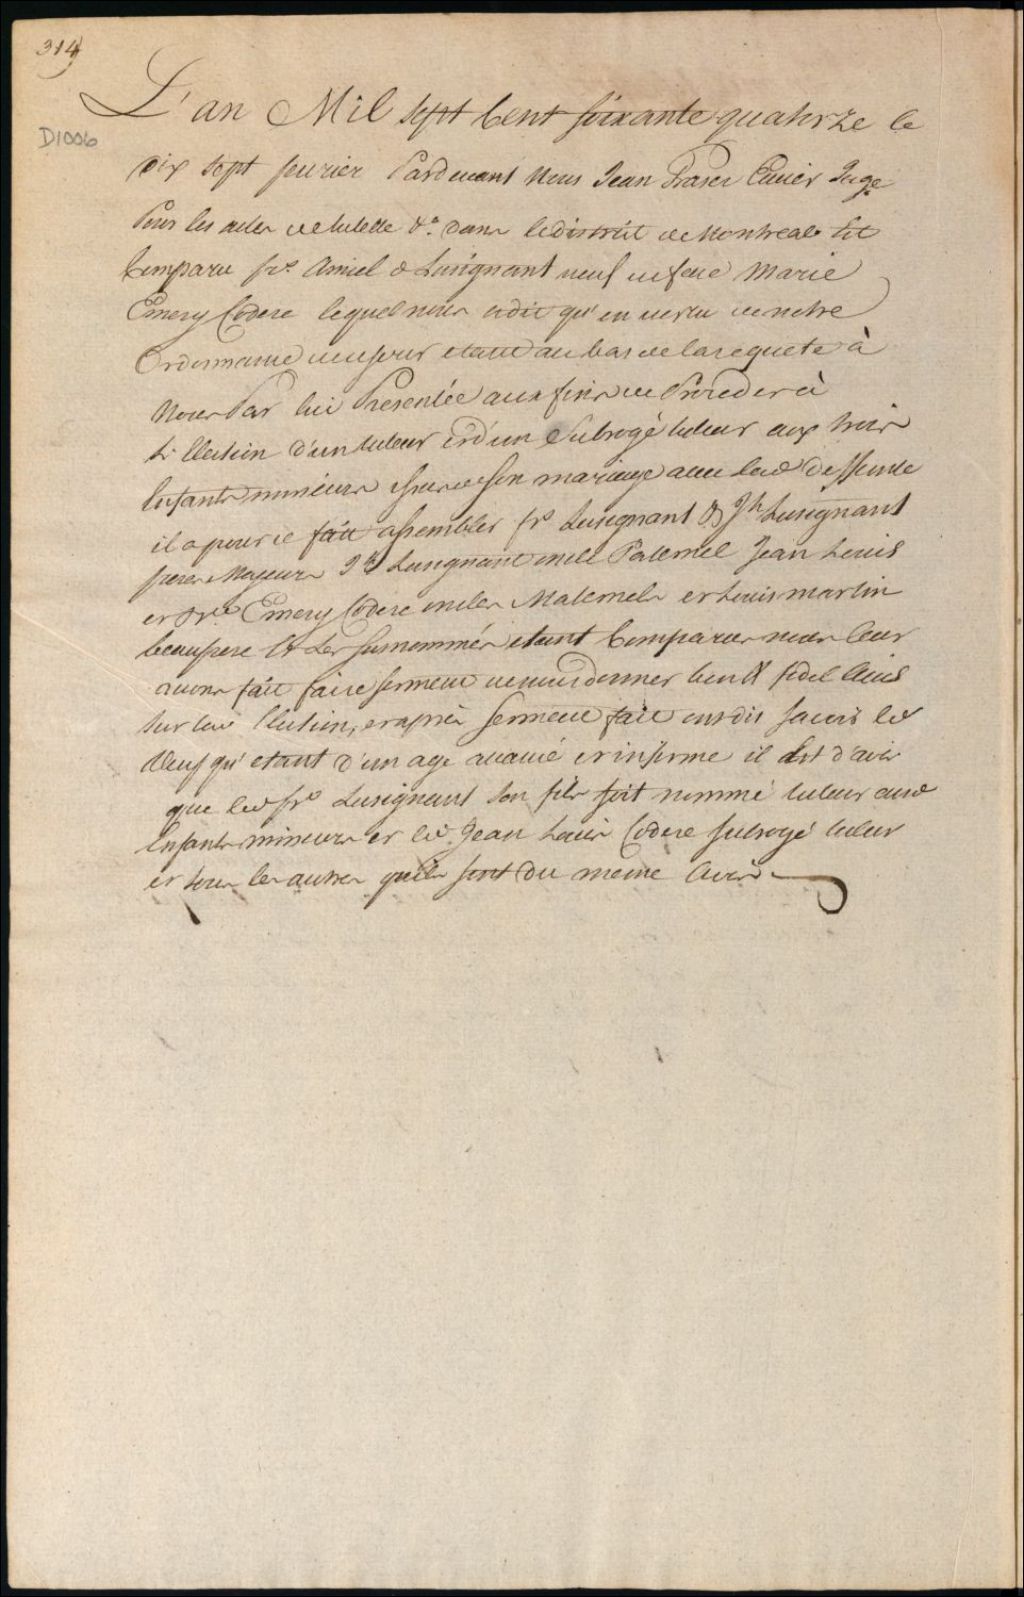 314
D1006
L'an Mil sept Cent soixante quatorze le
dix sept fevrier Pardevant Nous Jean Fraser Ecuier Juge
Pour les actes de tutelle &a. dans le district de Montreal est
Comparu frs. Amiel de Lusignant veuf de feue Marie
Emery Codere lequel nous a dit qu'en vertu de notre
Ordonnance de ce jour etant au bas de la requete à
Nous Par lui Presentée aux fins de Proceder à
L'Election d'un tuteur et d'un Subrogé tuteur aux trois
Enfants mineurs issus de son mariage avec lad deffunte
il a pour ce fait assembler frs Lusignant & Jh Lusignant
freres Majeurs Jh Lusignant oncle Paternel Jean Louis
et Emery Codere oncles Maternels et Louis martin
beaufrere Et Les surnommés etant Comparus nous leur
avons fait faire serment de nous donner bon & fidel Avis
sur lad Election, et après serment fait ont dit savoir led
Veuf qu'etant d'un age avancé et infirme il est d'avis
que led frs Lusignant son fils soit nommé tuteur auxd
Enfants mineurs et led. Jean Louis Codere subrogé tuteur
et tous les autres qu'ils sont du meme Avis